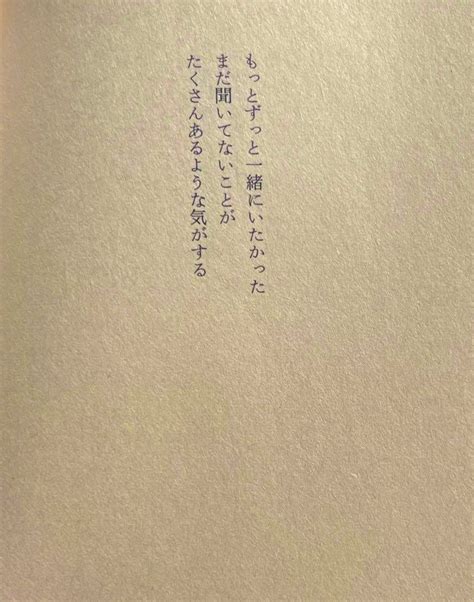 もっとずっと一緒にいたかった
まだ聞いてないことが
たくさんあるような気がする